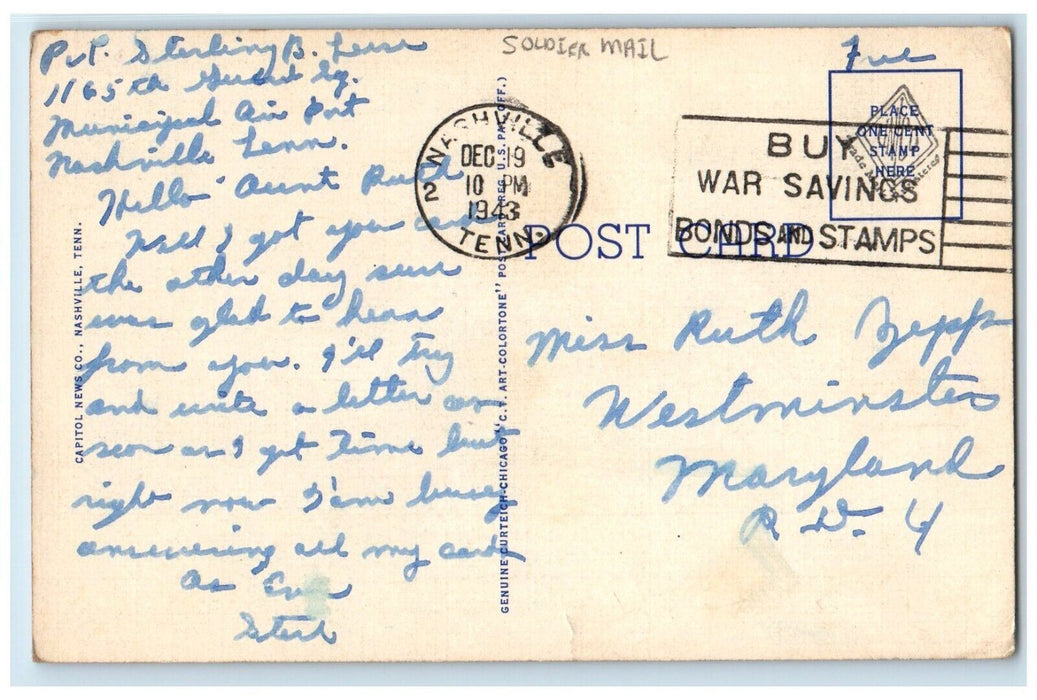 Pvt. Sterling B. Leese
1165th Guard Sq.
Municipal Air Port
Nashville Tenn.
Hello Aunt Ruth
Well I got your card
the other day sure
was glad to hear
from you. I'll try
and write a letter as
soon as I get time but
right now I'am busy
answering all my cards
As Ever
Sterl
CAPITOL NEWS CO., NASHVILLE, TENN.
GENUINE CURTEICH-CHICAGO "C.T. ART-COLORTONE" POST CARD (REG. U.S. PAT. OFF.)
SOLDIER MAIL
Free
PLACE
ONE CENT
STAMP
HERE
Trade Mark Registered
NASHVILLE
DEC 19
10 PM
1943
2
TENN.
BUY
WAR SAVINGS
BONDS AND STAMPS
POST CARD
Miss Ruth Zepp
Westminster
Maryland
R. D. 4